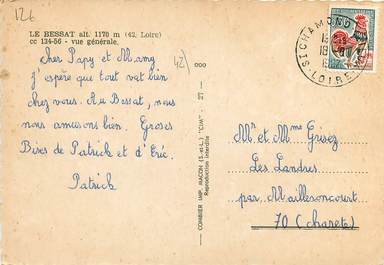 126
LE BESSAT alt. 1170 m (42, Loire)
cc 134-56 - vue générale.
Cher Papy et Mamy
J'espère que tout vat bien
chez vous. Au Bessat, nous
nous amusons bien. Groses
Bises de Patrick et d'Eric.
Patrick
42)
ooo
COMBIER IMP. MACON (S.-et-L.) "CIM" - 27 -
Reproduction interdite
ST CHAMOND
LOIRE
Mr et Mme Grisez
Les Landres
par Mailleroncourt
70 (charete)